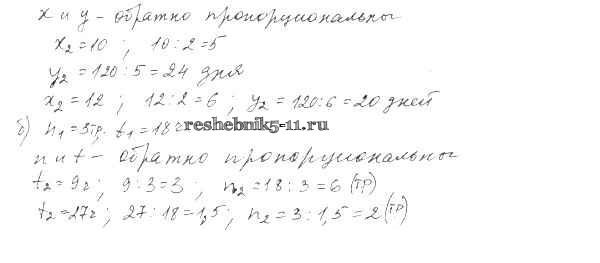 x и y - обратно пропорциональны
x₂=10 ; 10:2=5
y₂=120:5=24 дня
x₂=12 ; 12:2=6 ; y₂=120:6=20 дней
б) n₁=3тр; t₁=18ч
reshebnik5-11.ru
n и t - обратно пропорциональны
t₂=9ч; 9:3=3 ; n₂=18:3=6 (тр)
t₂=27ч; 27:18=1,5; n₂=3:1,5=2 (тр)